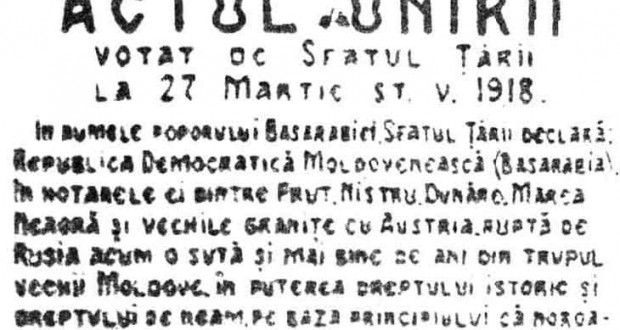 ACTUL UNIRII
VOTAT DE SFATUL ȚĂRII
LA 27 MARTIE ST. V. 1918.
IN NUMELE POPORULUI BASARABIEI, SFATUL ȚĂRII DECLARĂ:
REPUBLICA DEMOCRATICĂ MOLDOVENEASCĂ (BASARABIA),
ÎN HOTARELE EI DINTRE PRUT, NISTRU, DUNĂRE, MAREA
NEAGRĂ ȘI VECHILE GRANIȚE CU AUSTRIA, RUPTĂ DE
RUSIA ACUM O SUTĂ ȘI MAI BINE DE ANI DIN TRUPUL
VECHII MOLDOVE, ÎN PUTEREA DREPTULUI ISTORIC ȘI
DREPTULUI DE NEAM, PE BAZA PRINCIPIULUI CĂ NOROA-